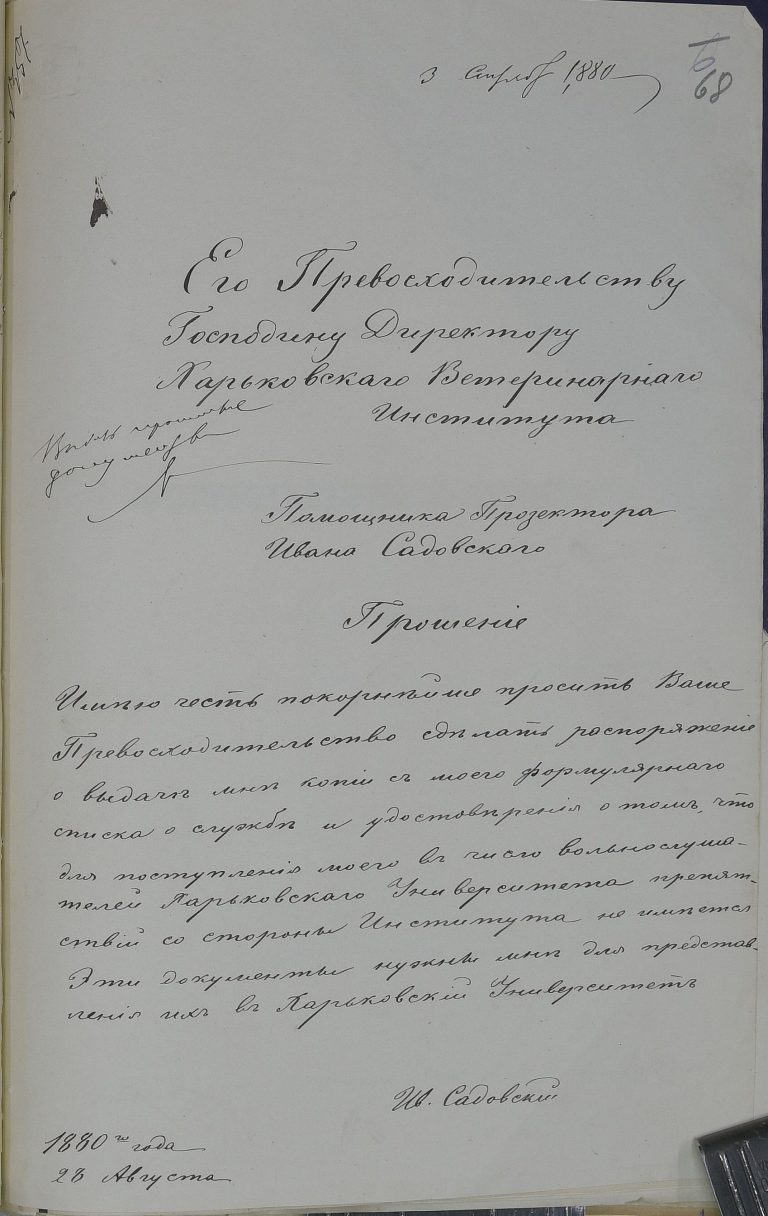 68
3 1880
Его Превосходительству
Господину Директору
Харьковскаго Ветеринарнаго
Института
Выдать просимые
документы
Помощника Прозектора
Ивана Садовскаго
Прошеніе
Имѣю честь покорнѣйше просить Ваше
Превосходительство сдѣлать распоряженіе
о выдачѣ мнѣ копіи съ моего формулярнаго
списка о службѣ и удостовѣренія о томъ, что
для поступленія моего въ число вольнослуша-
телей Харьковскаго Университета препят-
ствій со стороны Института не имѣется
Эти документы нужны мнѣ для представ-
ленія ихъ въ Харьковскій Университетъ
Ив. Садовскій
1880 го года
28 Августа